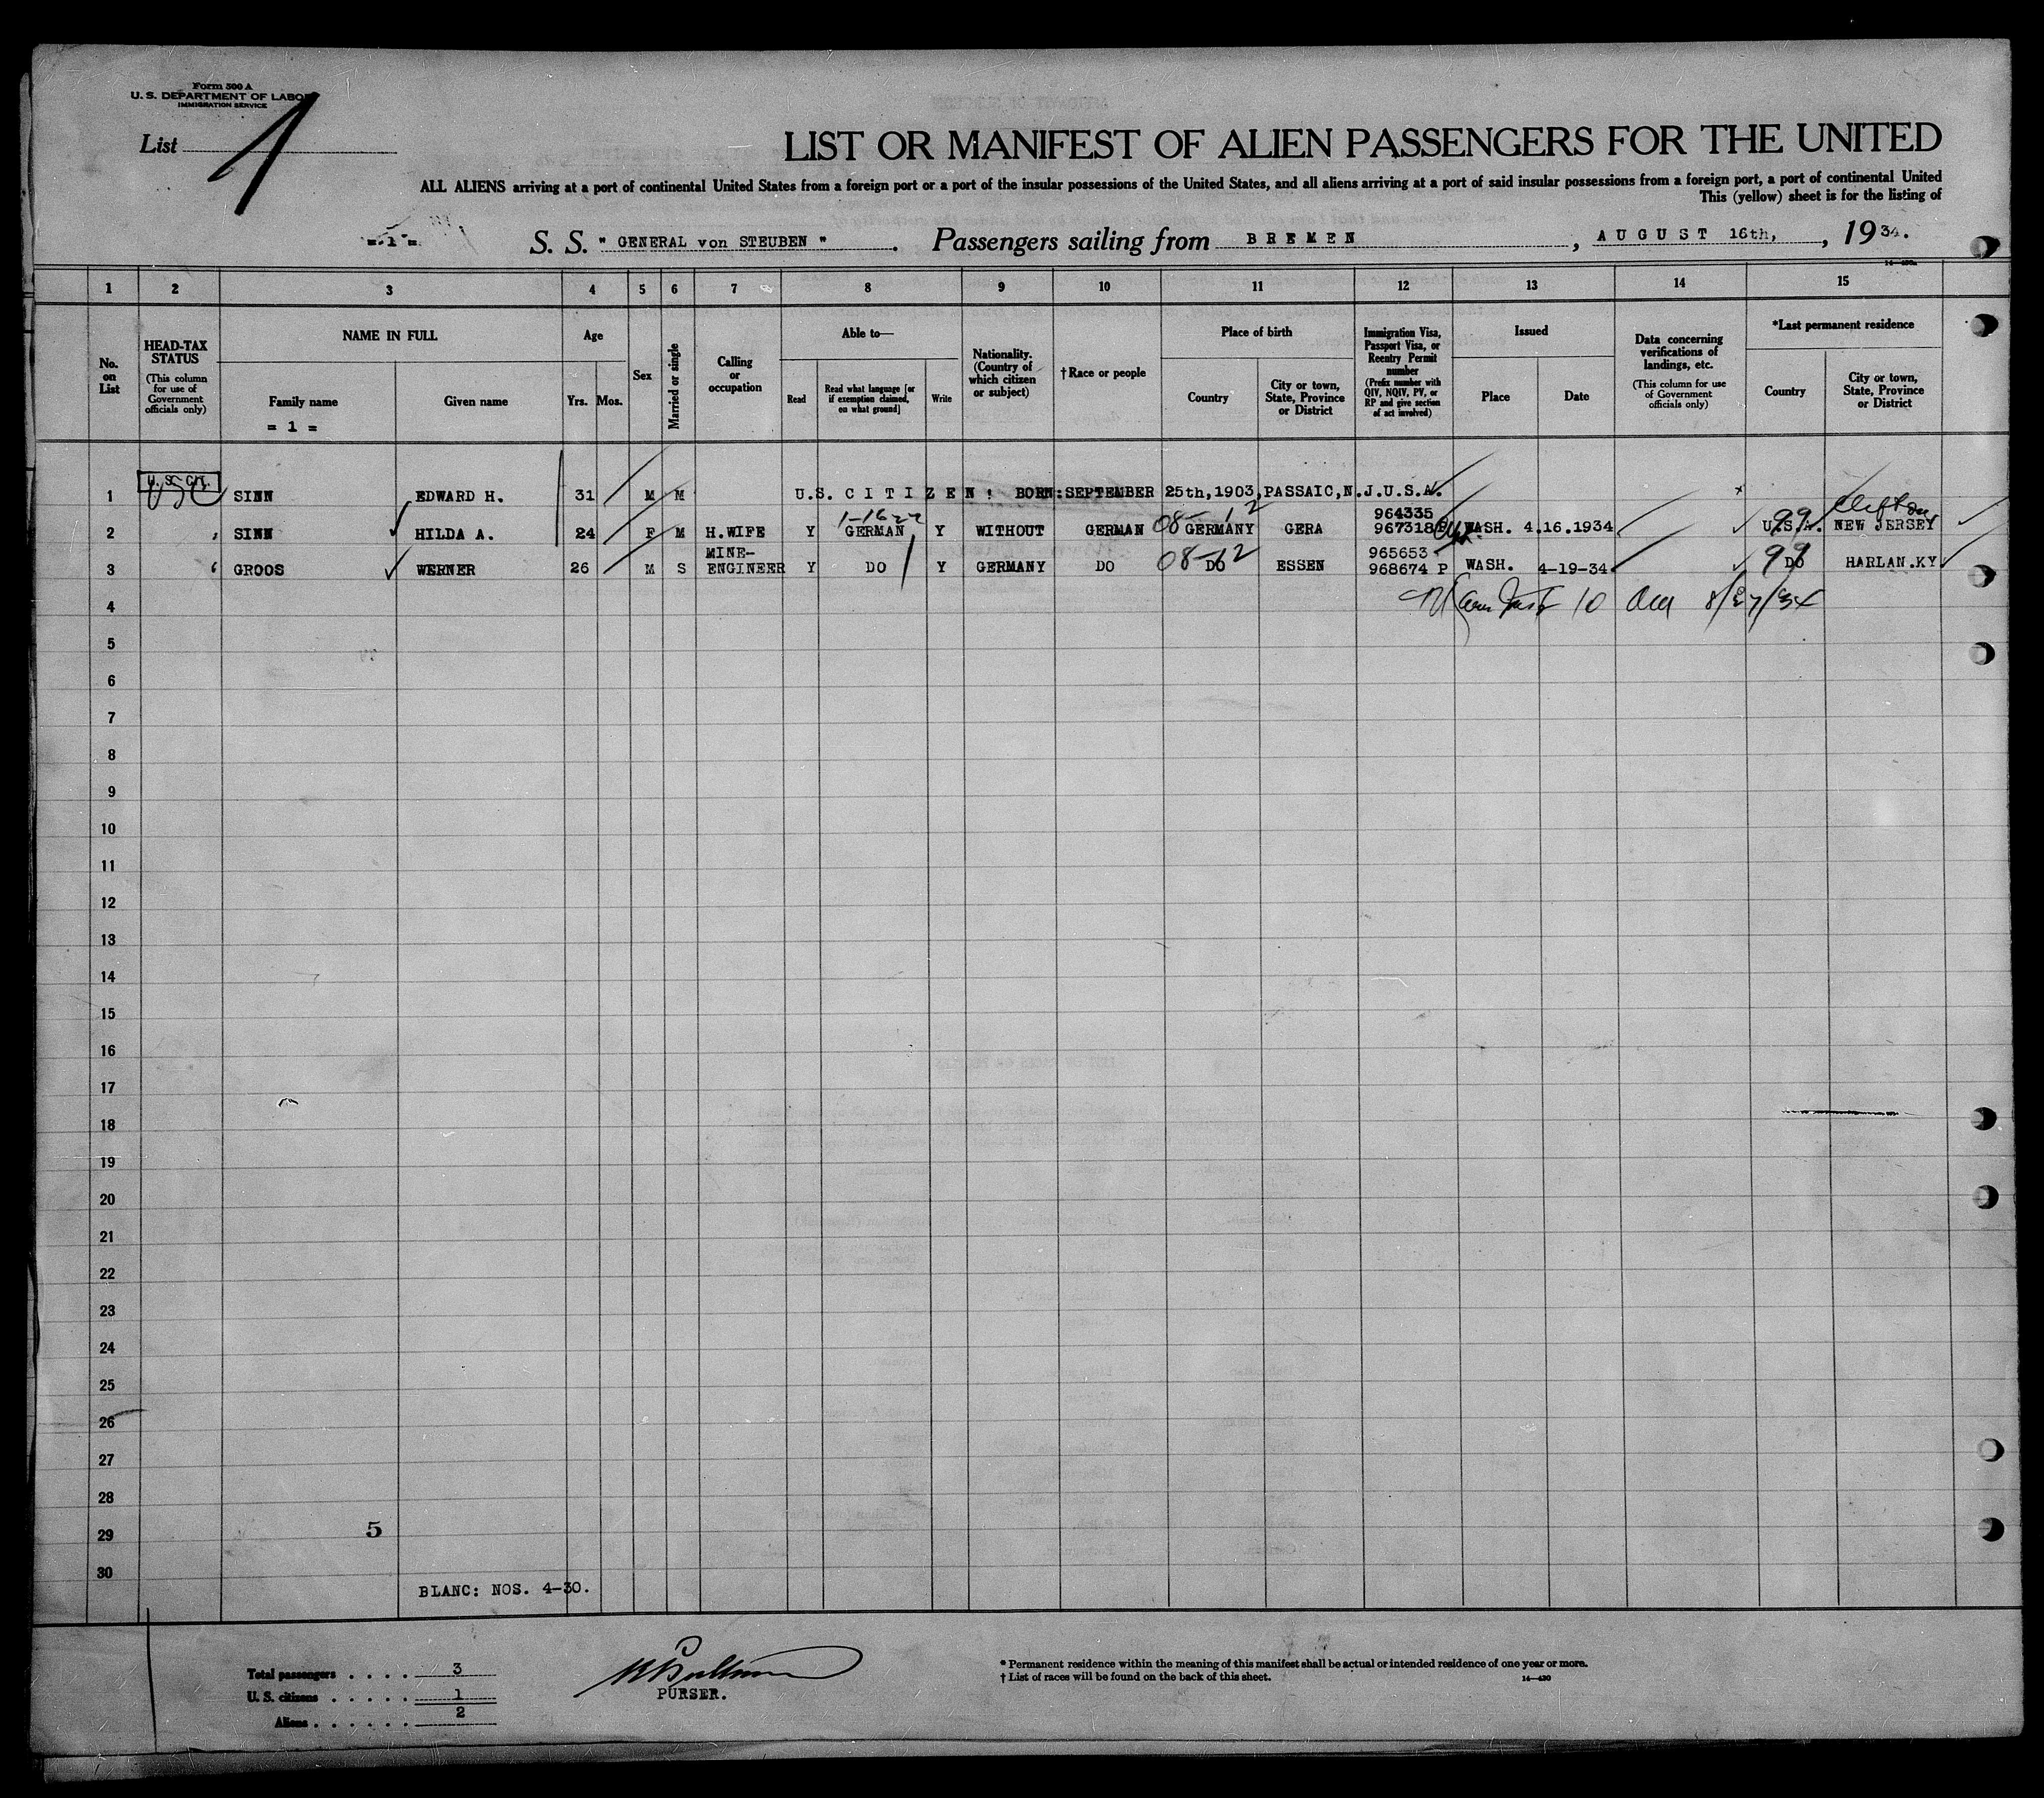 Form 500 A
U. S. DEPARTMENT OF LABOR
IMMIGRATION SERVICE
List 1
LIST OR MANIFEST OF ALIEN PASSENGERS FOR THE UNITED
ALL ALIENS arriving at a port of continental United States from a foreign port or a port of the insular possessions of the United States, and all aliens arriving at a port of said insular possessions from a foreign port, a port of continental United
This (yellow) sheet is for the listing of
= 1 =
S. S. " GENERAL von STEUBEN ". Passengers sailing from BREMEN, AUGUST 16th, , 1934.
14—430a
1 2 3 4 5 6 7 8 9 10 11 12 13 14 15
No. on List
HEAD-TAX STATUS
(This column for use of Government officials only)
NAME IN FULL
Family name
= 1 =
Given name
Age
Yrs. Mos.
Sex
Married or single
Calling or occupation
Able to—
Read
Read what language [or if exemption claimed, on what ground]
Write
Nationality. (Country of which citizen or subject)
†Race or people
Place of birth
Country
City or town, State, Province or District
Immigration Visa, Passport Visa, or Reentry Permit number
(Prefix number with QIV, NQIV, PV, or RP and give section of act involved)
Issued
Place
Date
Data concerning verifications of landings, etc.
(This column for use of Government officials only)
*Last permanent residence
Country
City or town, State, Province or District
U. S. CIT.
USC
1 SINN EDWARD H. 31 M M U.S. CITIZEN! BORN:SEPTEMBER 25th,1903,PASSAIC,N.J.U.S.A.
1-16 08-12 964335 Clifton,
2 SINN HILDA A. 24 F M H.WIFE Y GERMAN Y WITHOUT GERMAN GERMANY GERA 967318 WASH. 4.16.1934 99 U.S.A. NEW JERSEY
MINE- 965653
3 GROOS WERNER 26 M S ENGINEER Y DO Y GERMANY DO 08-12 DO ESSEN 968674 P WASH. 4-19-34 99 DO HARLAN.KY
4 10 8/27/34
5
6
7
8
9
10
11
12
13
14
15
16
17
18
19
20
21
22
23
24
25
26
27
28
29 5
30
BLANC: NOS. 4-30.
Total passengers . . . . 3
U. S. citizens . . . . . 1
Aliens . . . . . . 2
PURSER.
* Permanent residence within the meaning of this manifest shall be actual or intended residence of one year or more.
† List of races will be found on the back of this sheet.
14—430